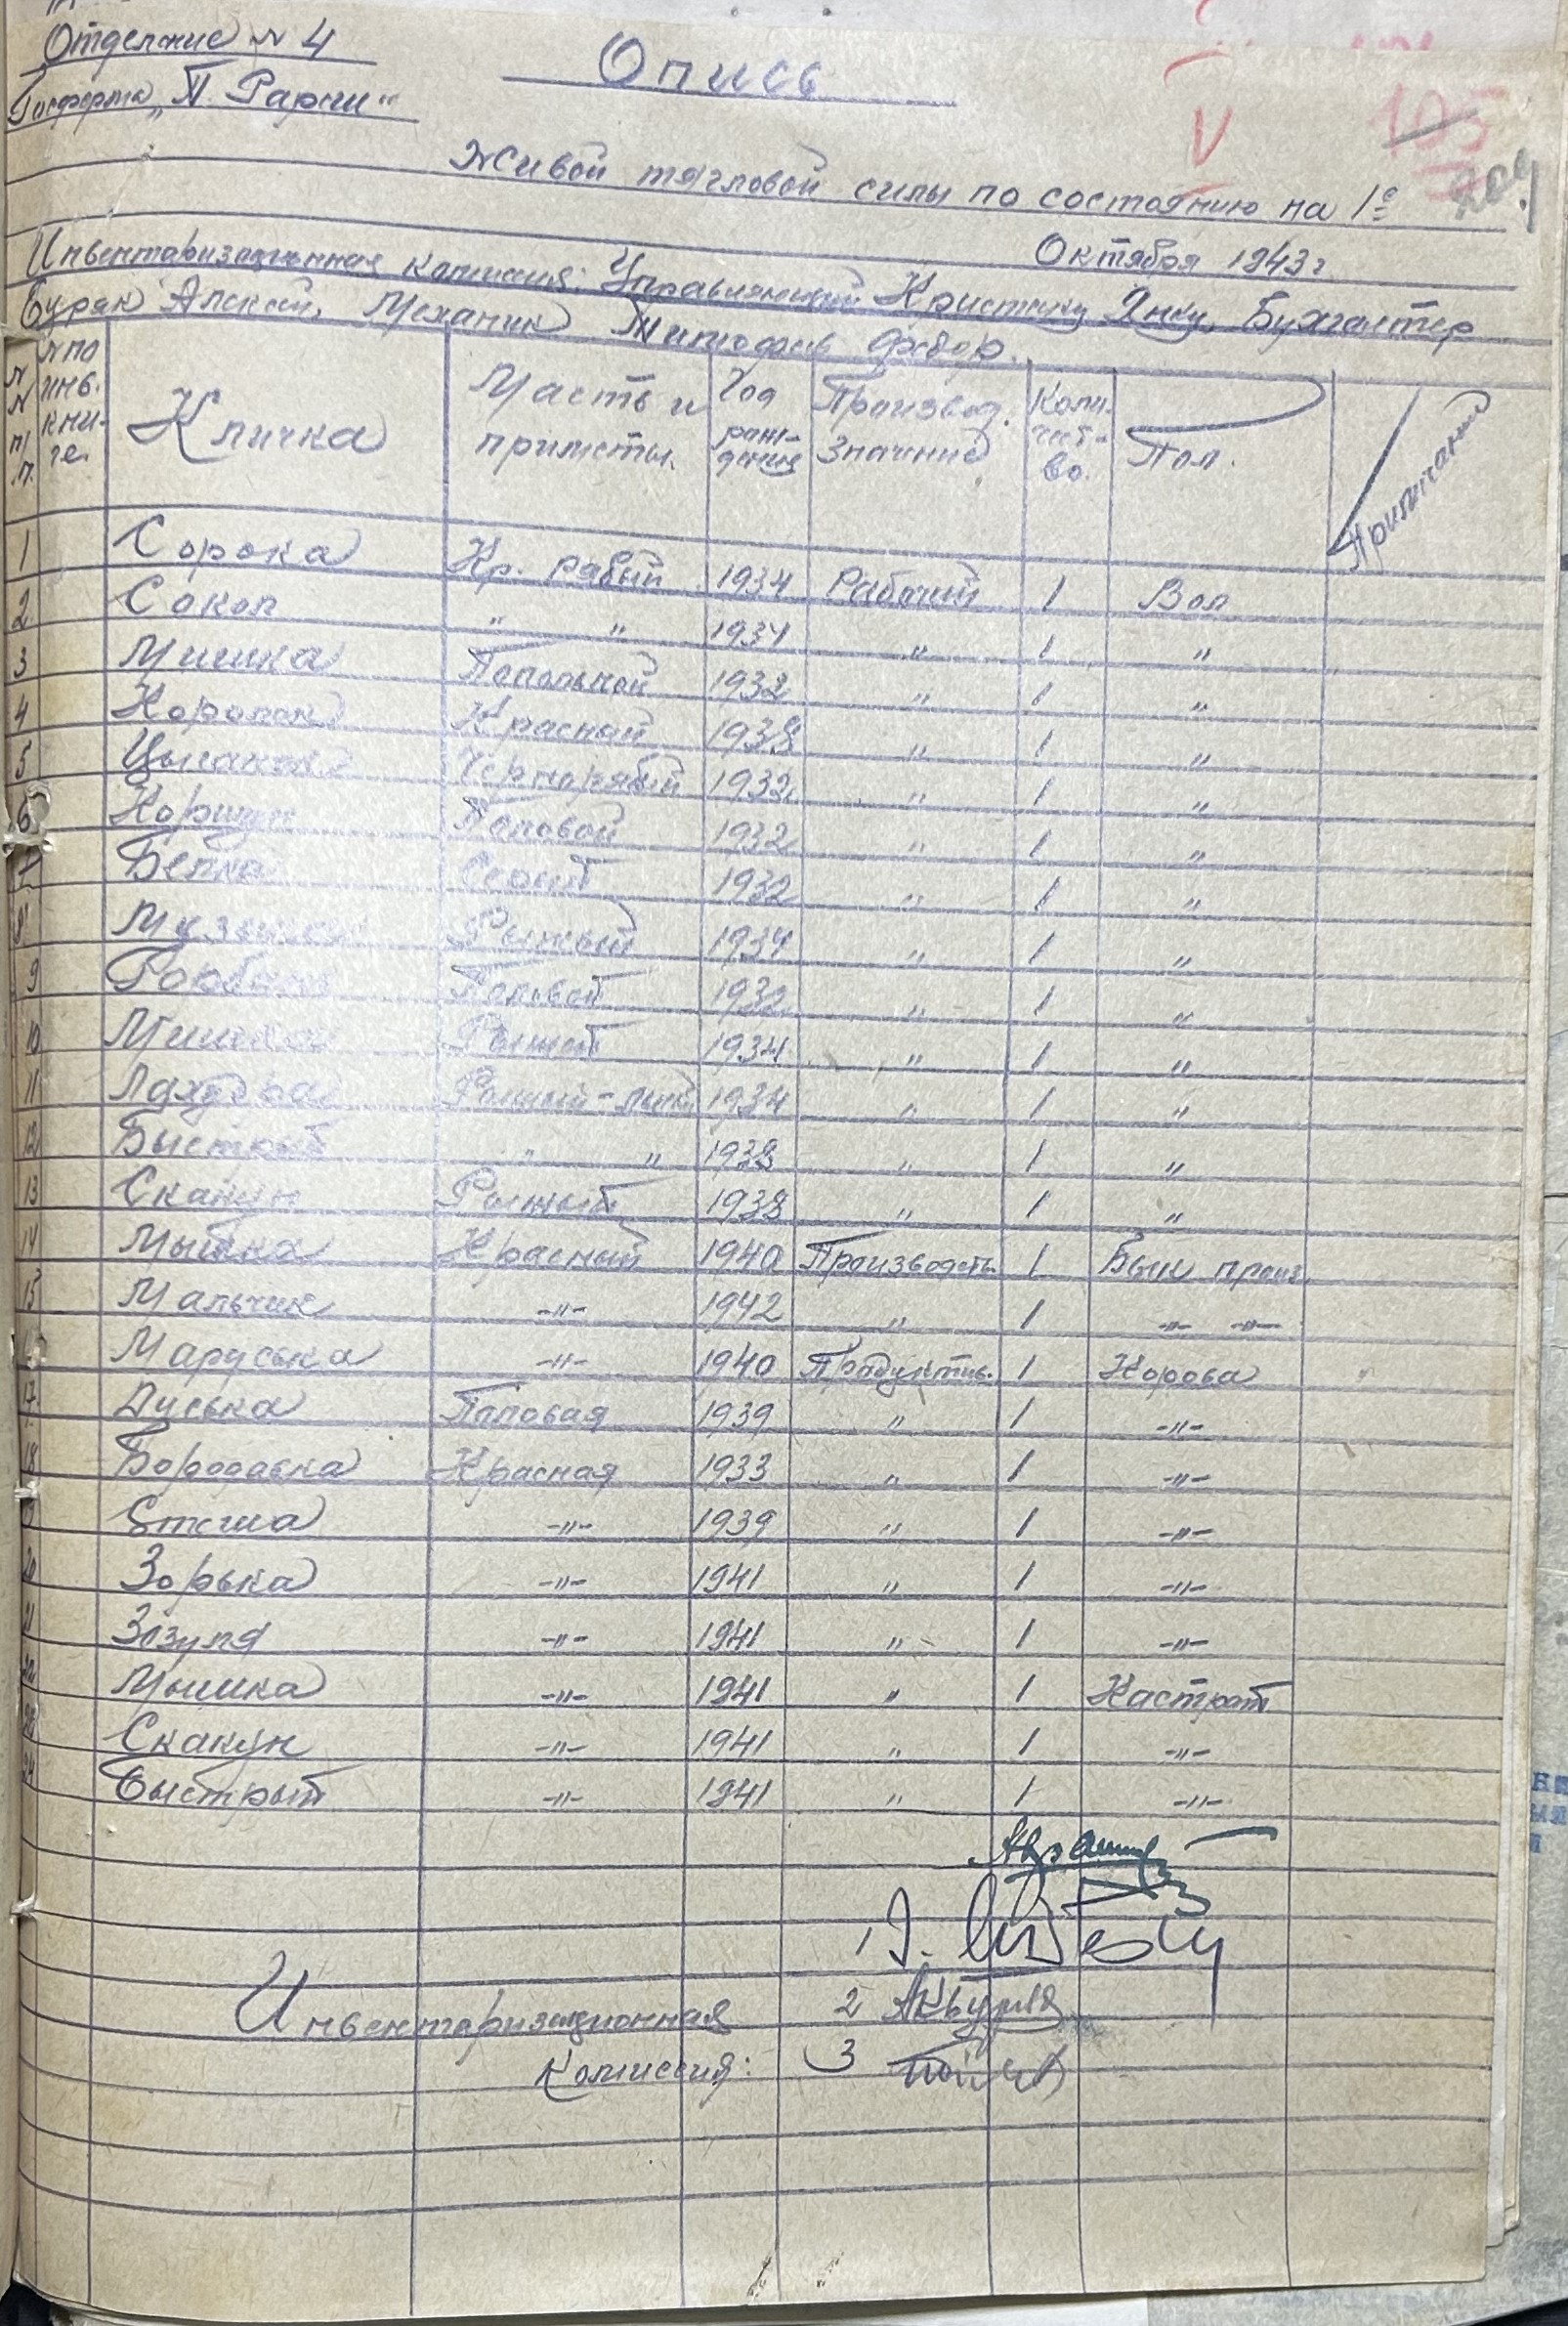 Отделение № 4
Госферма "П. Рарии"
Опись
V
105
204
Живой тягловой силы по состоянию на 1е
Октября 1943 г
Инвентаризационная комиссия: Управляющий Кристику Янку, Бухгалтер
Буряк Алексей, Механик Тимофеев Федор.
№№ п/п. № по инв. кни-ге. Кличка Масть и приметы. Год рож-дения Производ. значение Коли-чест-во. Пол. Примечание
1 Сорока Кр. рябый 1934 Рабочий 1 Вол
2 Сокол " " 1934 " 1 "
3 Мишка Пепельной 1932 " 1 "
4 Королек Красный 1938 " 1 "
5 Цыганок Чернорябый 1932 " 1 "
6 Коршун Половой 1932 " 1 "
7 Белка Серый 1932 " 1 "
8 Музыка Рыжый 1934 " 1 "
9 Половой 1932 " 1 "
10 Мишка Рыжий 1934 " 1 "
11 Лахудра Рыжий-лысый 1934 " 1 "
12 Быстрый " " 1938 " 1 "
13 Скакун Рыжый 1938 " 1 "
14 Мышка Красный 1940 Производит. 1 Бык произ.
15 Мальчик -"- 1942 " 1 -"- -"-
16 Маруська -"- 1940 Продуктив. 1 Корова
17 Дуська Половая 1939 " 1 -"-
18 Бородавка Красная 1933 " 1 -"-
19 Стеша -"- 1939 " 1 -"-
20 Зорька -"- 1941 " 1 -"-
21 Зозуля -"- 1941 " 1 -"-
22 Мышка -"- 1941 " 1 Кастрат
23 Скакун -"- 1941 " 1 -"-
24 Быстрый -"- 1941 " 1 -"-
1
Инвентаризационная 2
комиссия: 3